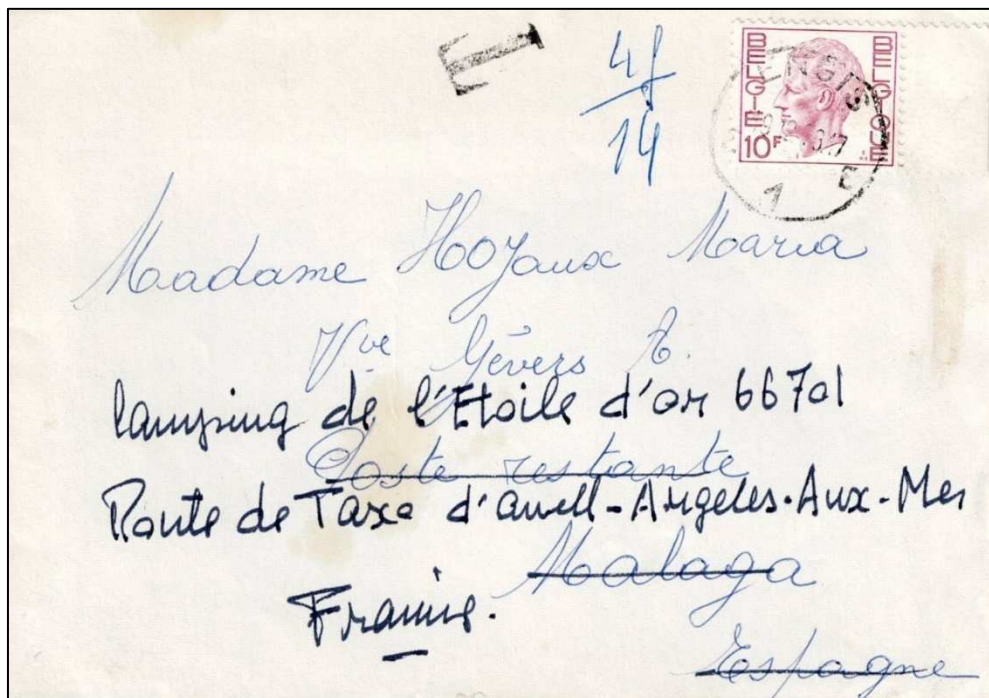 T
4f
14
BELGIE BELGIQUE
10F
ENGIS
1
E
Madame Hoyaux Maria
Vve Gévers A.
Camping de l'Etoile d'or 66701
Poste restante
Route de Taxo d'avell-Argeles-Aux-Mer
Malaga
France.
Espagne